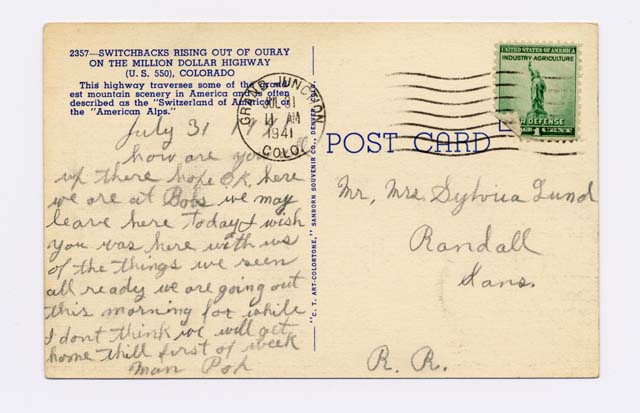 2357—SWITCHBACKS RISING OUT OF OURAY
ON THE MILLION DOLLAR HIGHWAY
(U. S. 550), COLORADO
This highway traverses some of the grand-
est mountain scenery in America and is often
described as the "Switzerland of America" or
the "American Alps."
July 31 1941
how are you all
up there hope O.K. here
we are at Bobs we may
leave here today I wish
you was here with us
of the things we seen
all ready we are going out
this morning for while
I dont think we will get
home thill first of week
"C. T. ART-COLORTONE," SANBORN SOUVENIR CO., DENVER, COLO.
GRAND JUNCTION
JUL 31
11 AM
1941
COLO.
POST CARD
UNITED STATES OF AMERICA
INDUSTRY-AGRICULTURE
DEFENSE
1 CENT
Mr, Mrs. Sylvia Lund
Randall
Kans.
R. R.